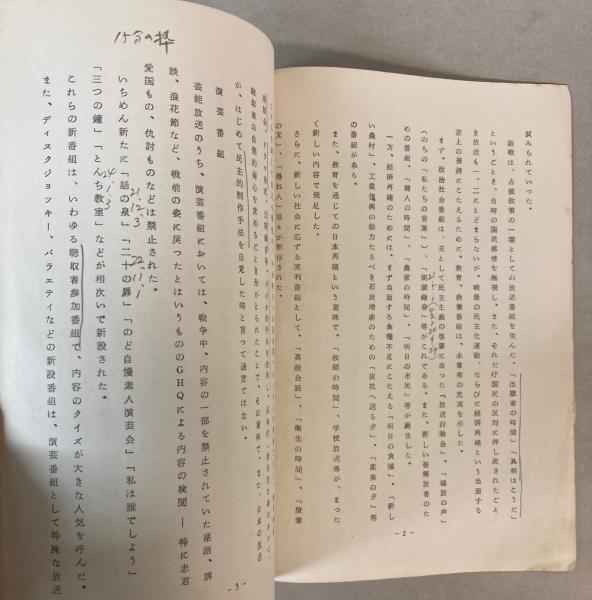 試みられていった。
敗戦は、占領政策の一環としての放送番組を生んだ。「出獄者の時間」「真相はこうだ」
というがごとき、当時の国民感情を無視し、また、それだけ国民の反対に押し流されたごと
き放送も一、二にとどまらないが、戦後の民主化運動、ならびに経済再建という当面する
至上の要請にこたえるために、教育、教養番組は、未曾有の充実を示した。
まず、政治社会番組は、主として民主主義の啓蒙に当った「放送討論会」、「建設の声」
(のちの「私たちの言葉」)、「街頭録音」等がこれである。また、新しい被解放者のた
めの番組、「婦人の時間」、「農家の時間」、「明日の市民」等が誕生した。
一方、経済再建のためには、まず当面する食糧不足にこたえる「明日の食糧」、「新し
い農村」、工業復興の動力たるべき石炭増産のための「炭坑へ送る夕」、「産業の夕」等
の番組がある。
また、教育を通じての日本再建という意味で、「教師の時間」、学校放送等が、まった
く新しい内容で発足した。
さらに、新しい社会に応ずる実利番組として、「英語会話」、「衛生の時間」、「療養
の友」、「尋ね人」等々が制作された。
-2-
聴取者の自発的関心を求めるごとき形がとられたことで、その意味で、また、日本の放送
が、はじめて民主的制作手法を自覚した時と言って過言ではない。
演芸番組
芸能放送のうち、演芸番組においては、戦争中、内容の一部を禁止されていた落語、講
談、浪花節など、戦前の姿に戻ったとはいうもののGHQによる内容の検閲―特に忠君
愛国もの、仇討ものなどは禁止された。
21.12.3
22.11.1
いちめん新たに「話の泉」「二十の扉」「のど自慢素人演芸会」「私は誰でしょう」
24.1.3
「三つの鐘」「とんち教室」などが相次いで新設された。
これらの新番組は、いわゆる聴取者参加番組で、内容のクイズが大きな人気を呼んだ。
また、ディスクジョッキー、バラエティなどの新設番組は、演芸番組として特殊な放送
15分の枠
-3-